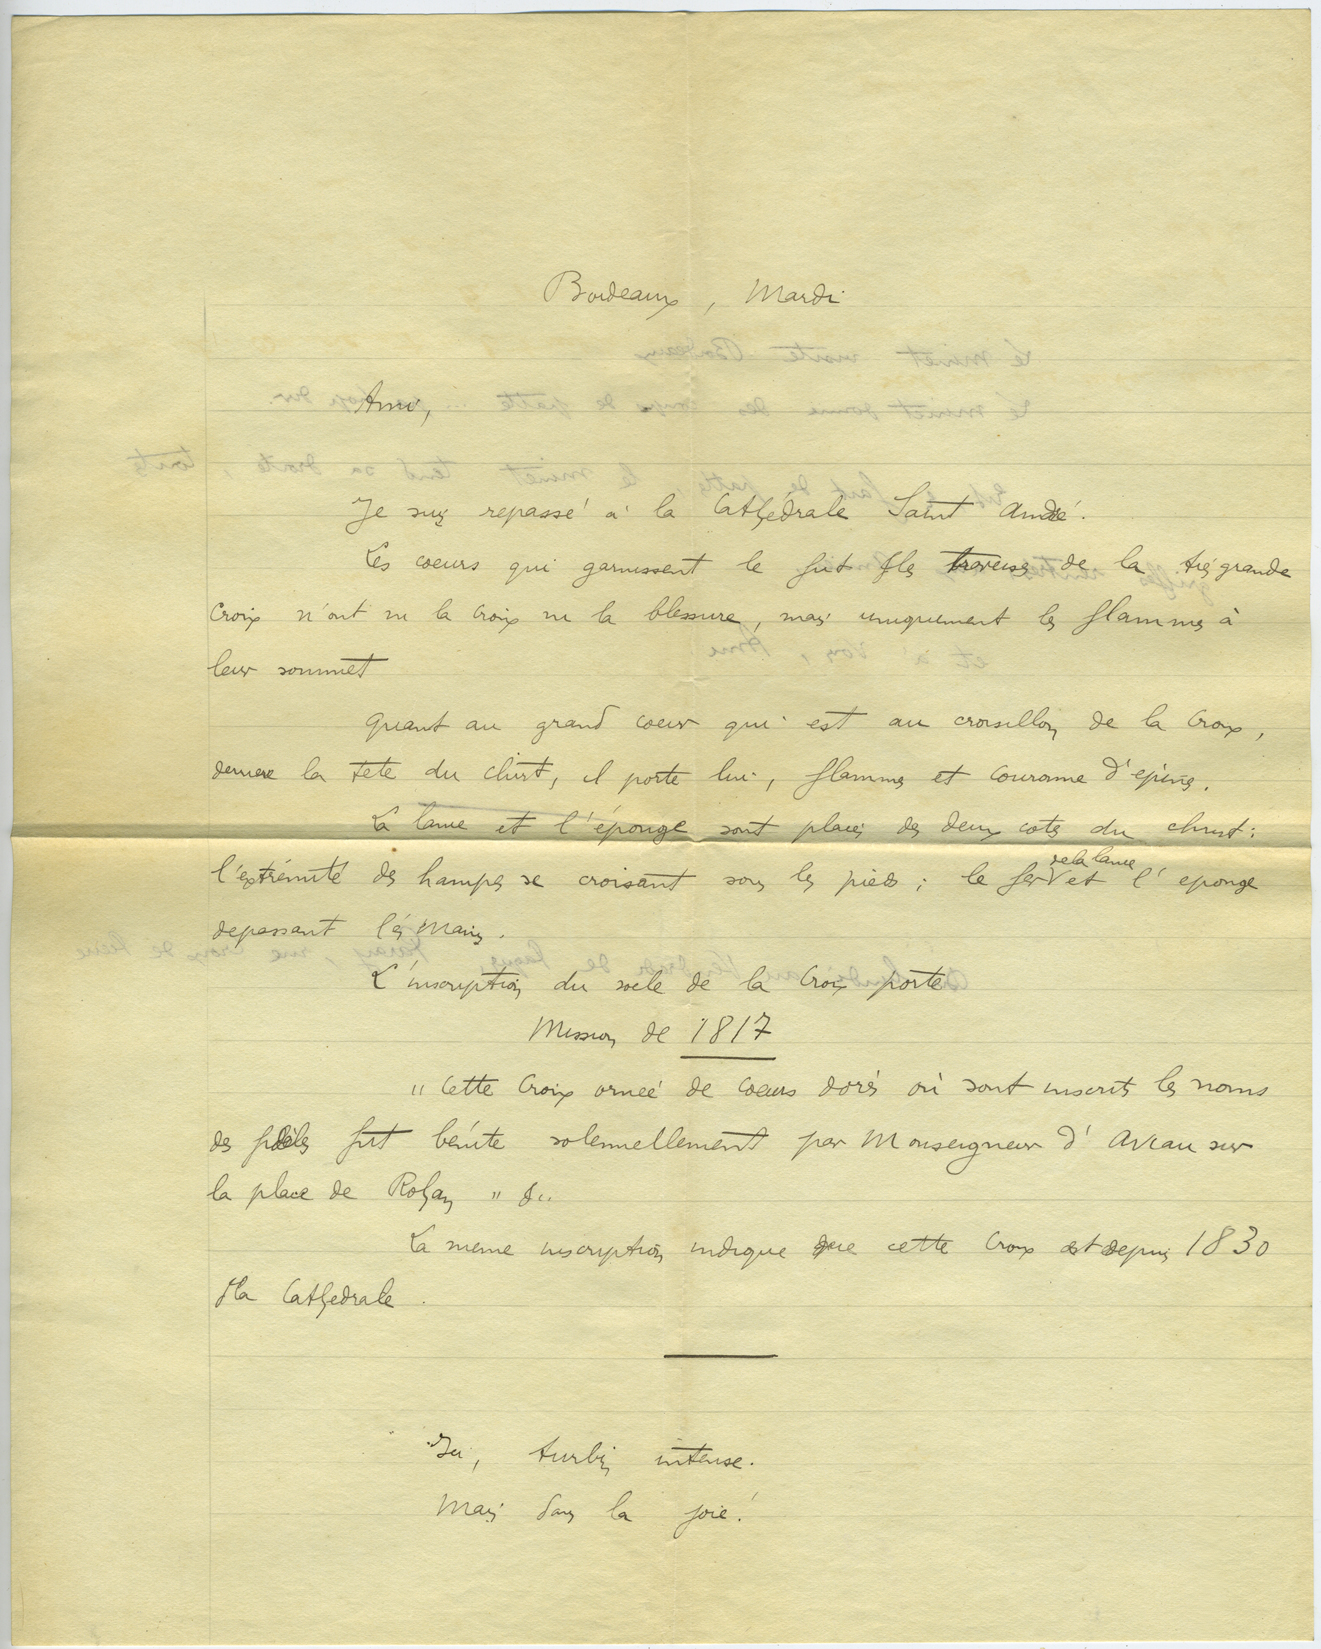 Bordeaux, Mardi
Ami,
Je suis repassé à la Cathédrale Saint André.
Les coeurs qui garnissent le fut & les traverses de la très grande
Croix n'ont ni la croix ni la blessure, mais uniquement les flammes à
leur sommet
Quant au grand coeur qui est au croisillon de la Croix,
derriere la tete du christ, il porte lui, flammes et couronne d'epines.
La lance et l'éponge sont placés des deux cotes du christ :
l'extrémité des hampes se croisant sous les pieds ; le fer de la lance et l'eponge
depassant les Mains.
L'inscription du socle de la Croix porte
Mission de 1817
"Cette Croix ornée de coeurs dorés où sont inscrits les noms
des fidèles fut bénite solennellement par Monseigneur d'Aviau sur
la place de Rohan" &..
La meme inscription indique que cette Croix est depuis 1830
à la Cathedrale.
Ici, turbin intense.
Mais dans la joie !